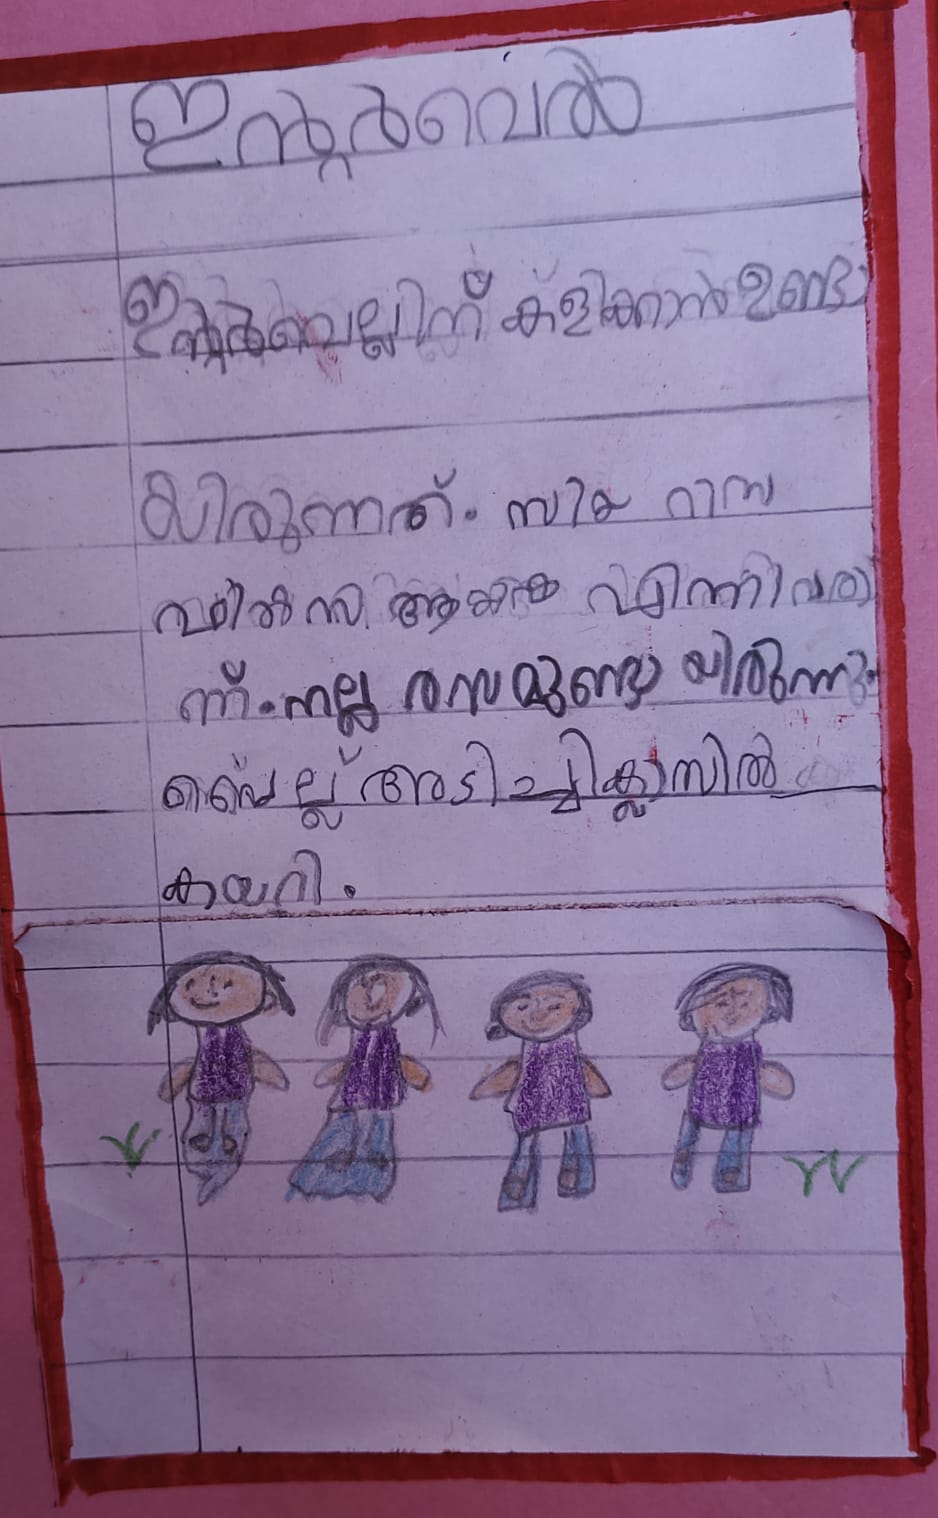 ഇന്റർവെൽ
ഇന്റർവെല്ലിന് കളിക്കാൻ ഉണ്ടാ
യിരുന്നത്. സിയ റിസ
എന്നിവരാ
ണ്. നല്ല രസമുണ്ടായിരുന്നു.
ബെല്ല് അടിച്ച് ക്ലാസിൽ
കയറി.